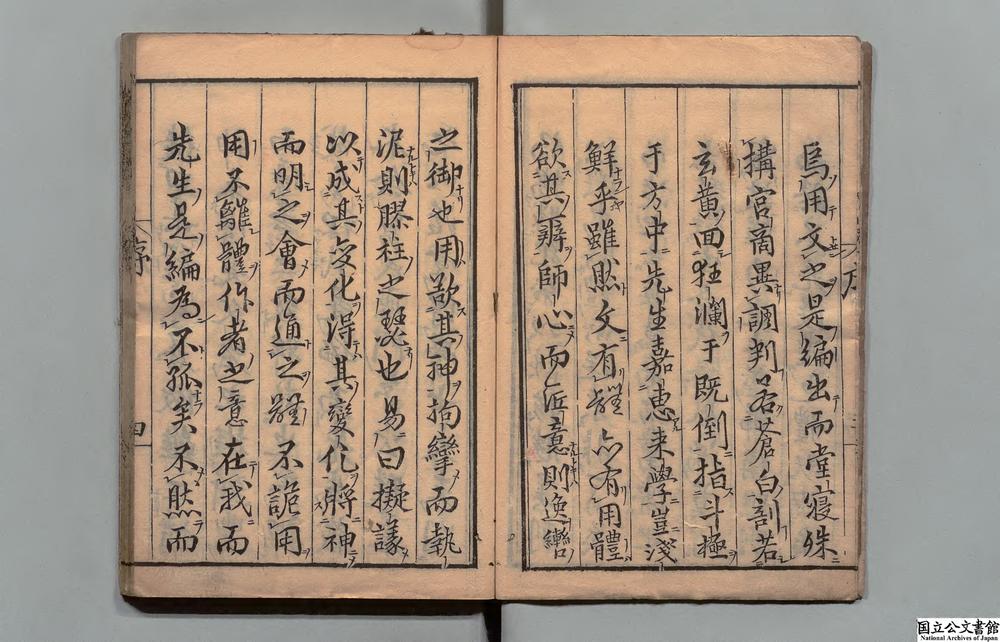 烏用文之是編出而堂寢殊
搆宮商異調判若蒼白剖若
玄黄回狂瀾于既倒指斗極
于方中先生嘉惠来學豈淺
鮮乎雖然文有體亦有用體
欲其辨師心而匠意則逸轡
之御也用欲其神拘攣而執
泥則膠柱之瑟也易曰擬議
以成其変化得其變化將神
而明之會而通之體不詭用
用不離體作者之意在我而
先生是編為不孤矣不然而
序 四
国立公文書館
National Archives of Japan